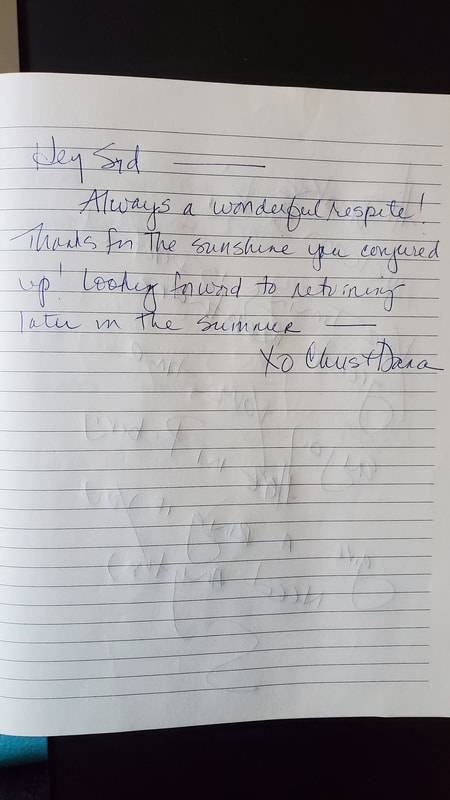 Hey Syd ———
Always a wonderful respite!
Thanks for the sunshine you conjured
up! Looking forward to returning
later in the summer ———
XO Chris + Dana